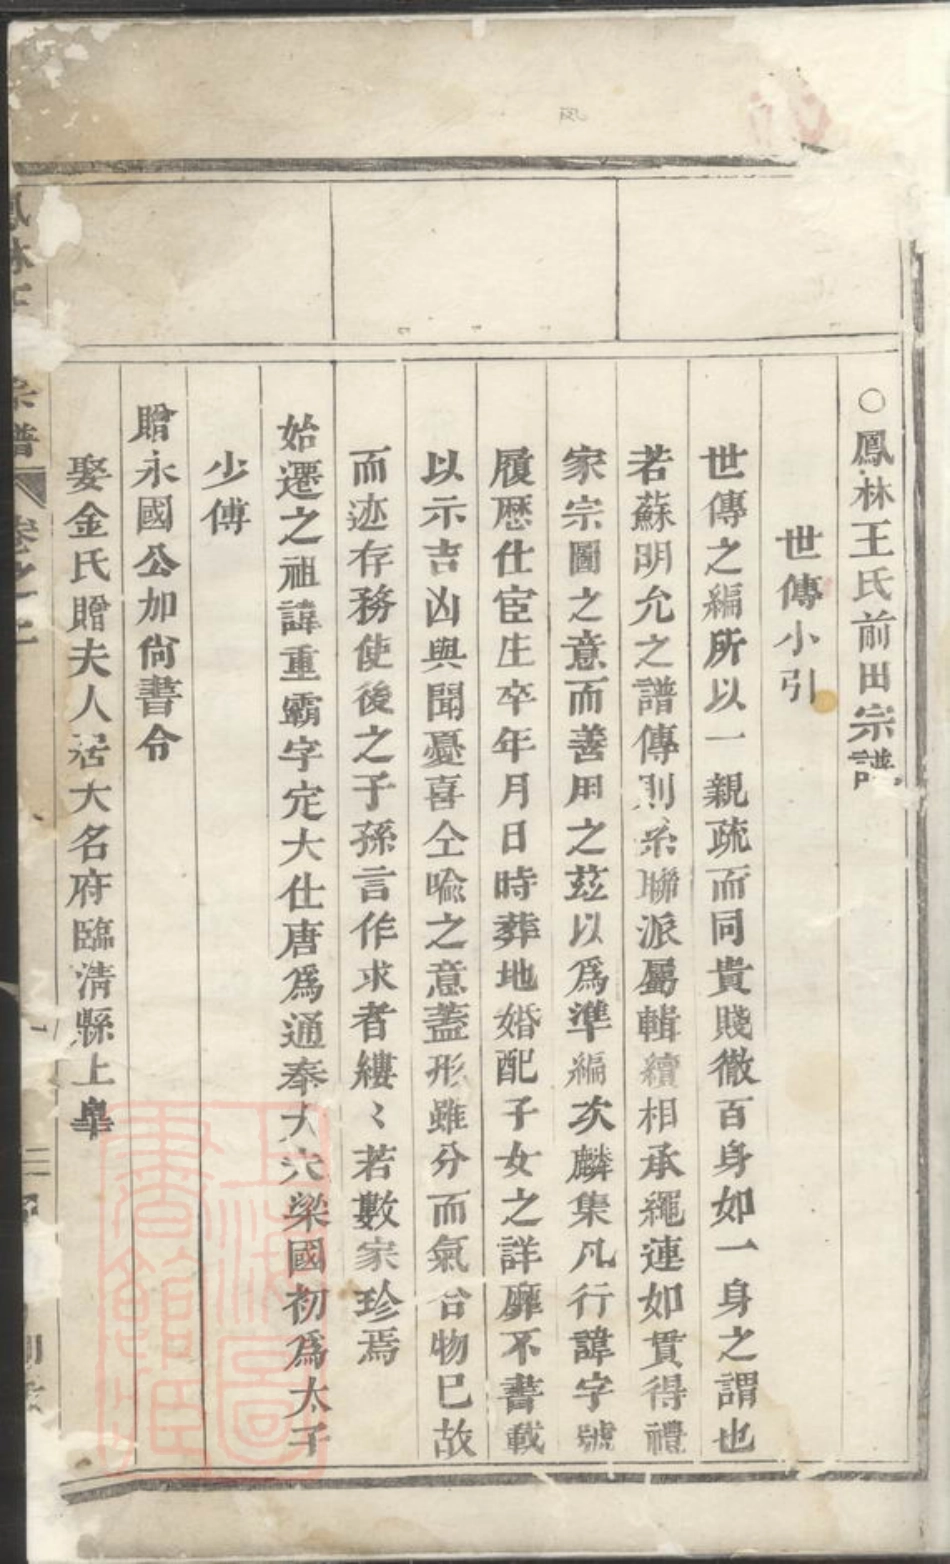 ○鳳林王氏前田宗譜
世傳小引
世傳之編所以一親疏而同貴賤徹百身如一身之謂也
若蘇明允之譜傳則系聯派屬輯續相承繩連如貫得禮
家宗圖之意而善用之茲以爲準編次麟集凡行諱字號
履歷仕宦生卒年月日時葬地婚配子女之詳靡不書載
以示吉凶與聞憂喜仝喻之意蓋形雖分而氣合物已故
而迹存務使後之子孫言作求者縷〻若數家珍焉
始遷之祖諱重霸字定大仕唐爲通奉大穴梁國初爲太子
少傅
贈永國公加尙書令
娶金氏贈夫人居大名府臨清縣上皐
宗譜
卷之上
上海圖書館藏